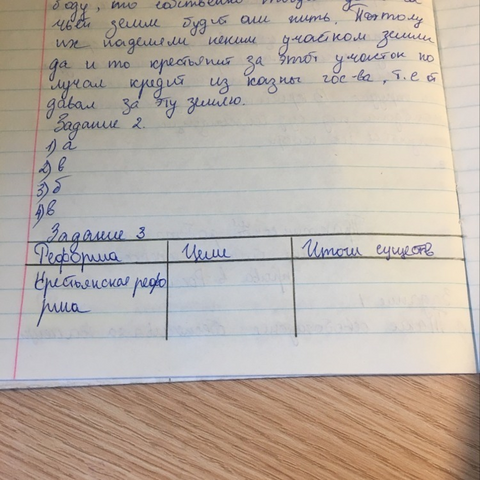 боду, то собственно
чьей земле будет они жить. Поэтому
их наделяли неким участком земли
да и то крестьянин за этот участок по
лучал кредит из казны гос-ва, т.е от
давал за эту землю.
Задание 2.
1) а
2) в
3) б
4) в
Задание 3
Реформа Цели Итоги существ
Крестьянская рефо
рма